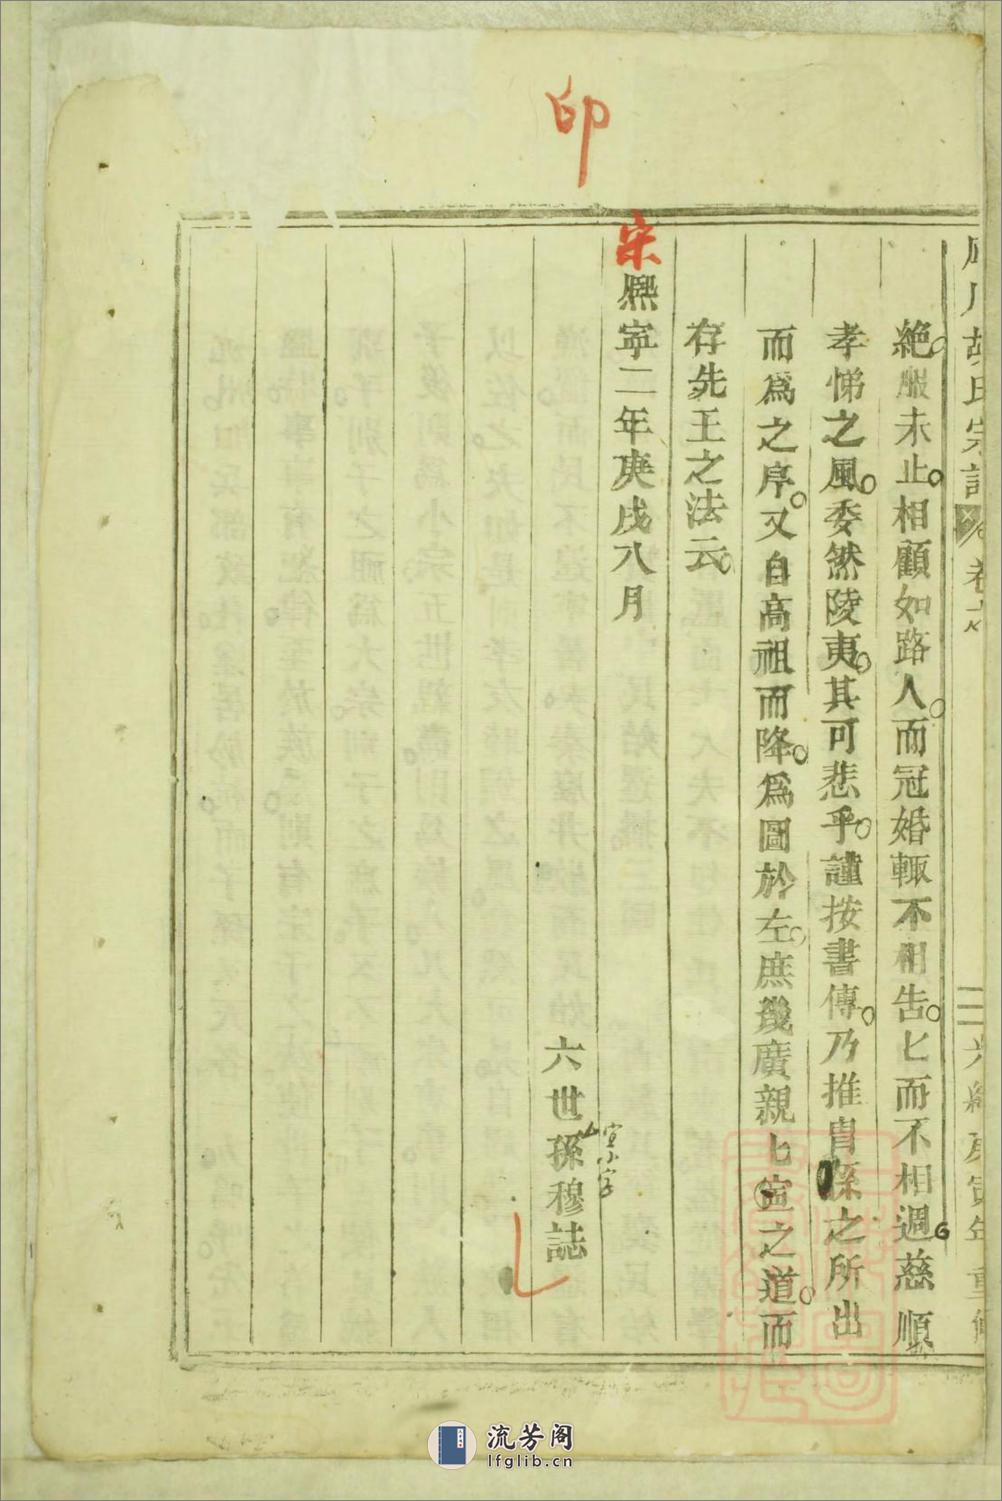 胡氏宗譜 卷六 三 光緒庚寅年重修
絶服未止相顧如路人而冠婚輒不相告匕而不相週慈順
孝悌之風委然陵夷其可悲乎謹按書傳乃推胄孫之所出
而爲之序又自高祖而降爲圖於左庶幾廣親匕寔之道而
存先王之法云
宋熈寧二年庚戌八月
六世孫穆誌
宜小字
印
流芳阁
lfglib.cn